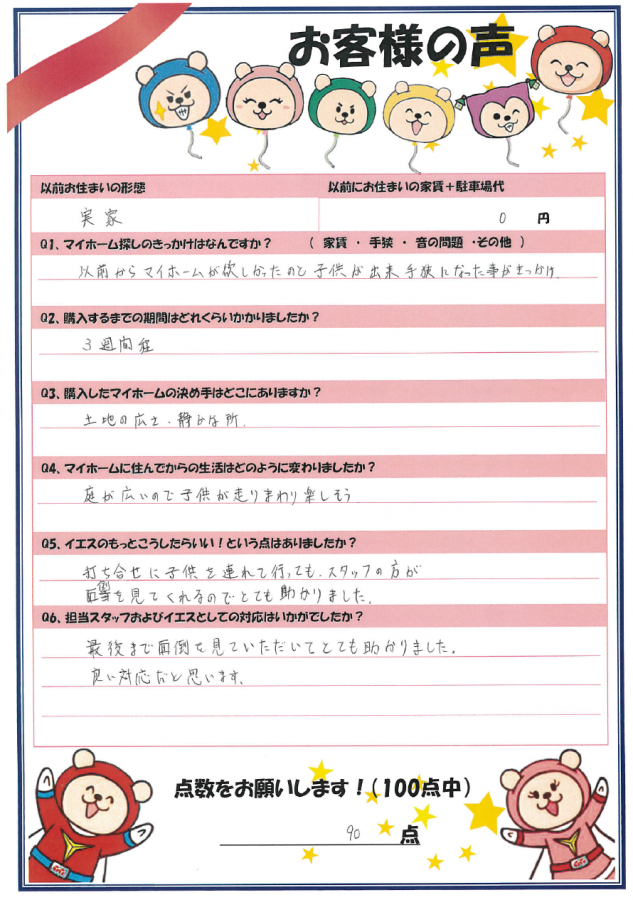 お客様の声
以前お住まいの形態
以前にお住まいの家賃＋駐車場代
実家
0 円
Q1、マイホーム探しのきっかけはなんですか？ （ 家賃 ・ 手狭 ・ 音の問題 ・その他 ）
以前からマイホームが欲しかったのと子供が出来手狭になった事がきっかけ.
Q2、購入するまでの期間はどれくらいかかりましたか？
3週間程
Q3、購入したマイホームの決め手はどこにありますか？
土地の広さ・静かな所.
Q4、マイホームに住んでからの生活はどのように変わりましたか？
庭が広いので子供が走りまわり楽しそう
Q5、イエスのもっとこうしたらいい！という点はありましたか？
打ち合せに子供を連れて行っても、スタッフの方が
面倒を見てくれるのでとても助かりました.
Q6、担当スタッフおよびイエスとしての対応はいかがでしたか？
最後まで面倒を見ていただいてとても助かりました。
良い対応だと思います。
点数をお願いします！（100点中）
90 点